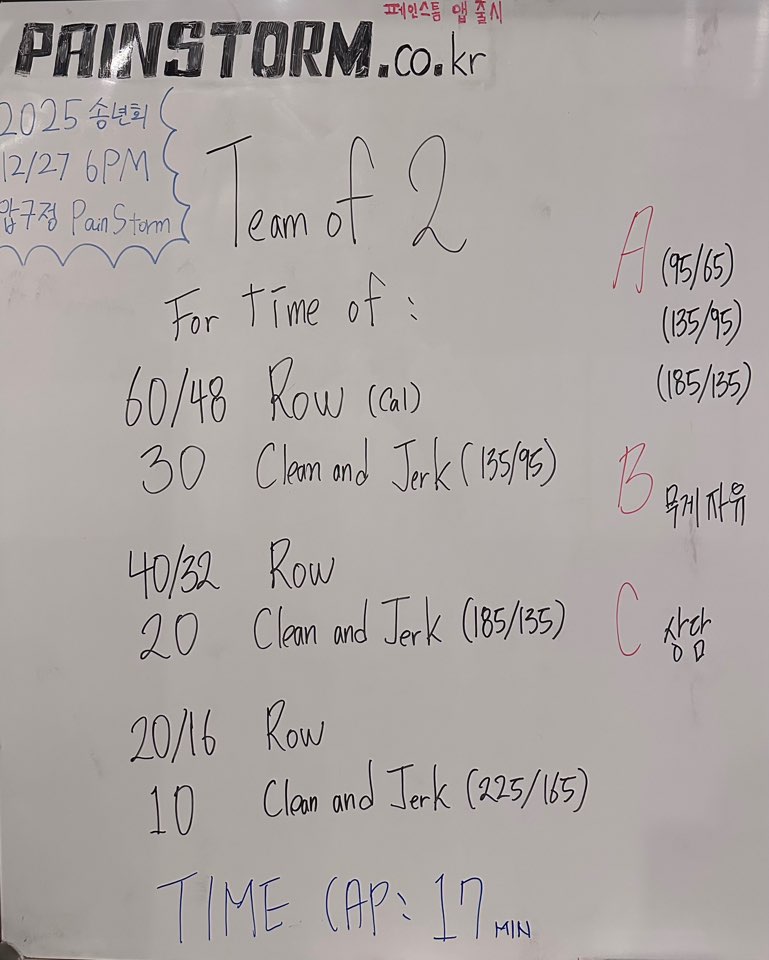 페인스톰 앱 출시
PAINSTORM.co.kr
2025 송년회
12/27 6PM
압구정 PainStorm
Team of 2
For time of :
60/48 Row (Cal)
30 Clean and Jerk (135/95)
40/32 Row
20 Clean and Jerk (185/135)
20/16 Row
10 Clean and Jerk (225/165)
A (95/65)
(135/95)
(185/135)
B 무게 자유
C 상담
TIME CAP: 17 MIN